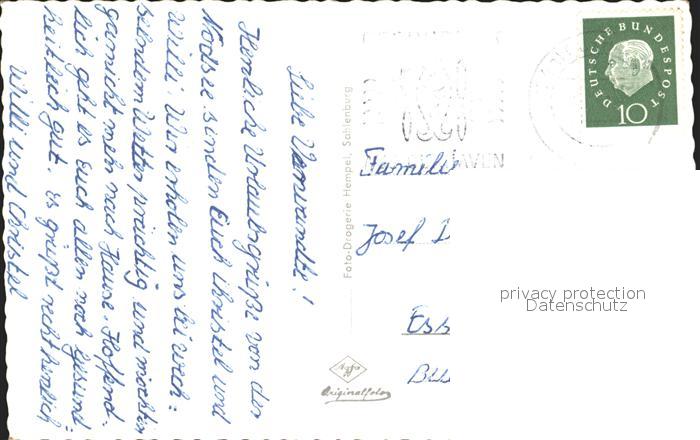 Liebe Verwandte!
Herzliche Urlaubsgrüße von der
Nordsee senden Euch Christel und
Willi. Wir erholen uns bei wech-
selndem Wetter prächtig und möchten
garnicht mehr nach Hause. Hoffent-
lich geht es Euch allen noch gesund-
heitlich gut. Es grüßt recht herzlich
Willi und Christel
Foto-Drogerie Hempel, Sahlenburg
Agfa
Originalfoto
DEUTSCHE BUNDESPOST
10
HAVEN
Famili
Josef
Ess
privacy protection
Datenschutz